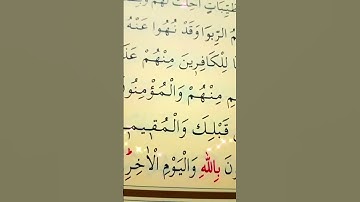 طَيِّبَاتٍ اُحِلَّتْ لَهُمْ
الرِّبٰوا وَقَدْ نُهُوا عَنْهُ
لِلْكَافِرِينَ مِنْهُمْ
مِنْهُمْ وَالْمُؤْمِنُونَ
قَبْلِكَ وَالْمُقِيمِ
بِاللّٰهِ وَالْيَوْمِ الْاٰخِرِ